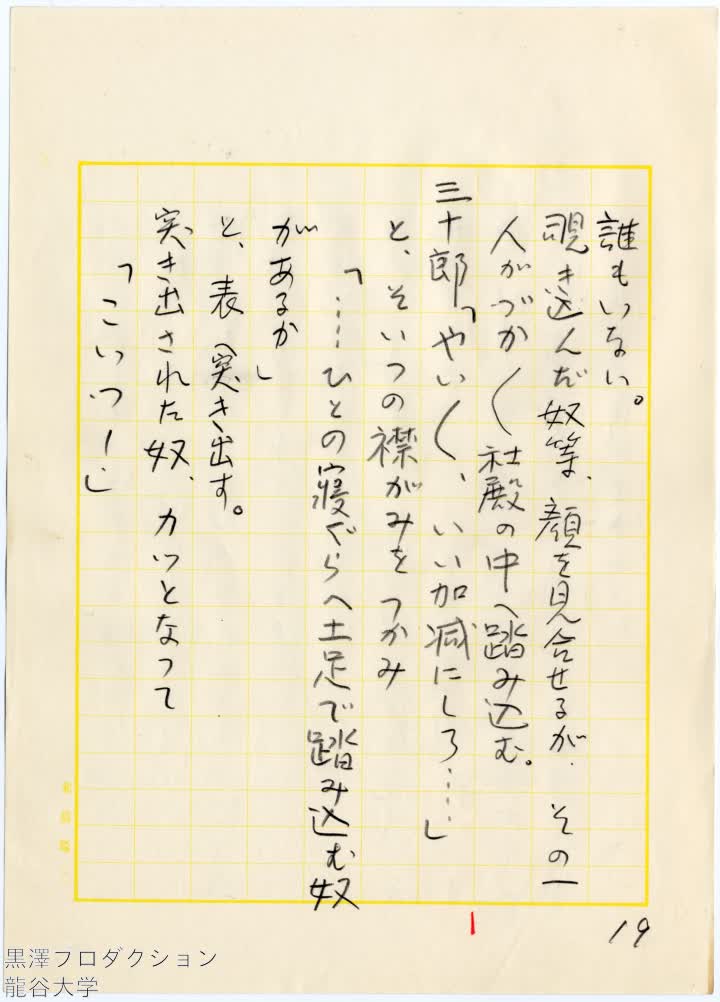 誰もいない。
覗き込んだ奴等、顔を見合せるが、その一
人がづか〱社殿の中へ踏み込む。
三十郎「やい〱、いい加減にしろ……」
と、そいつの襟がみをつかみ
「……ひとの寝ぐらへ土足で踏み込む奴
があるか」
と、表へ突き出す。
突き出された奴、カッとなって
「こいつー」
19
黒澤プロダクション
龍谷大学